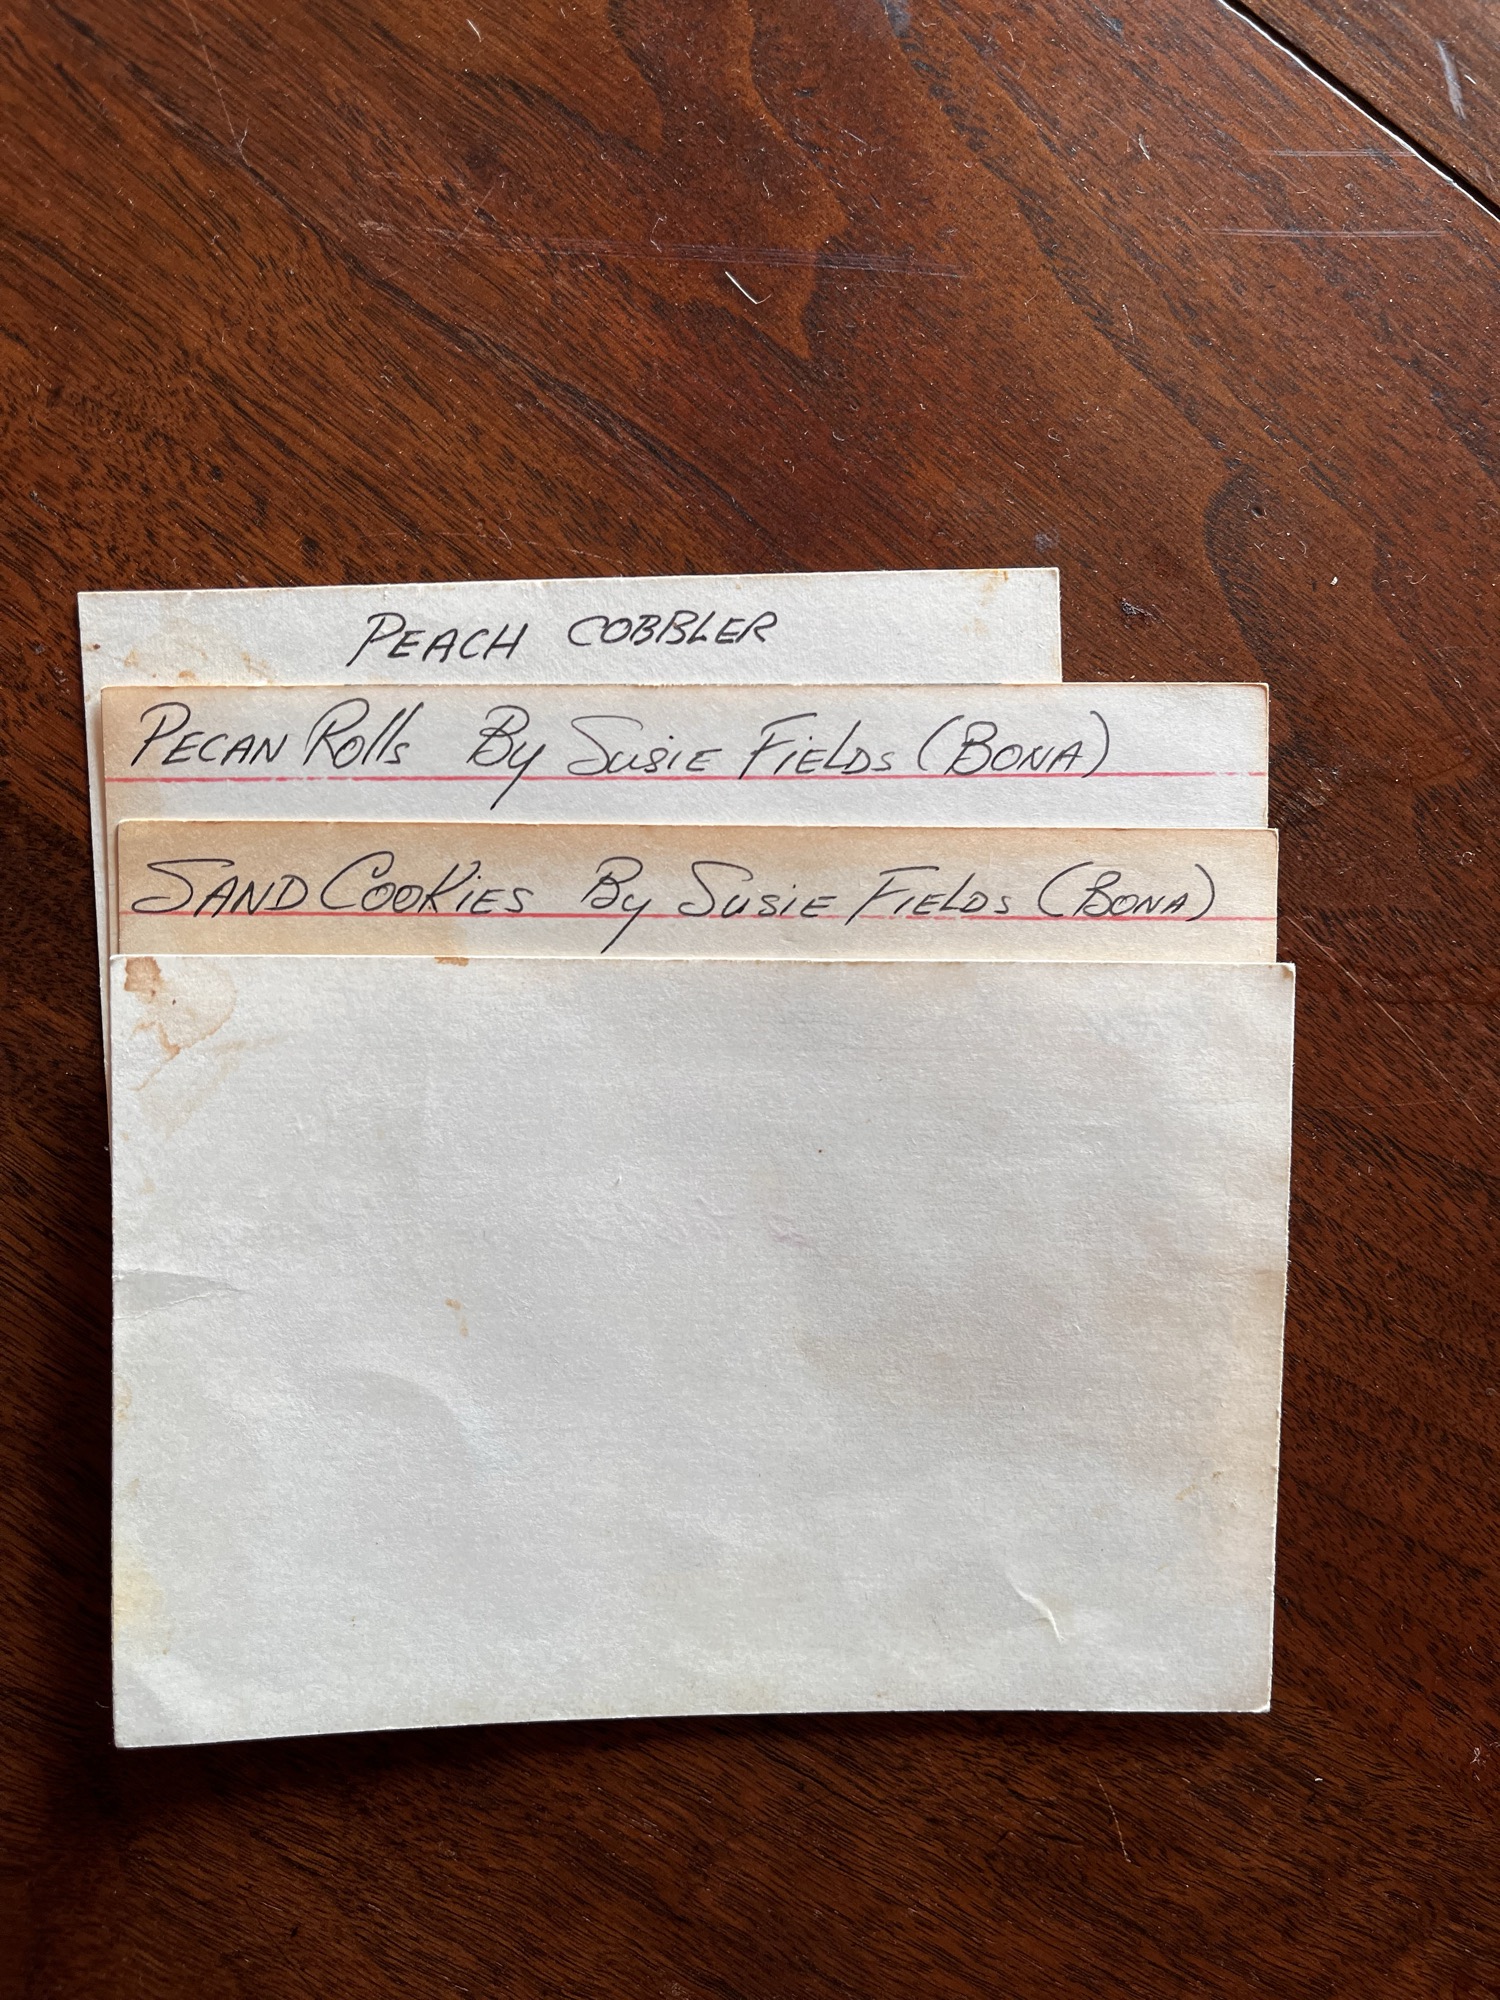 PEACH COBBLER
PECAN Rolls By SUSIE FiELDS (BONA)
SAND COOKiES By SUSiE FiELDS (BONA)